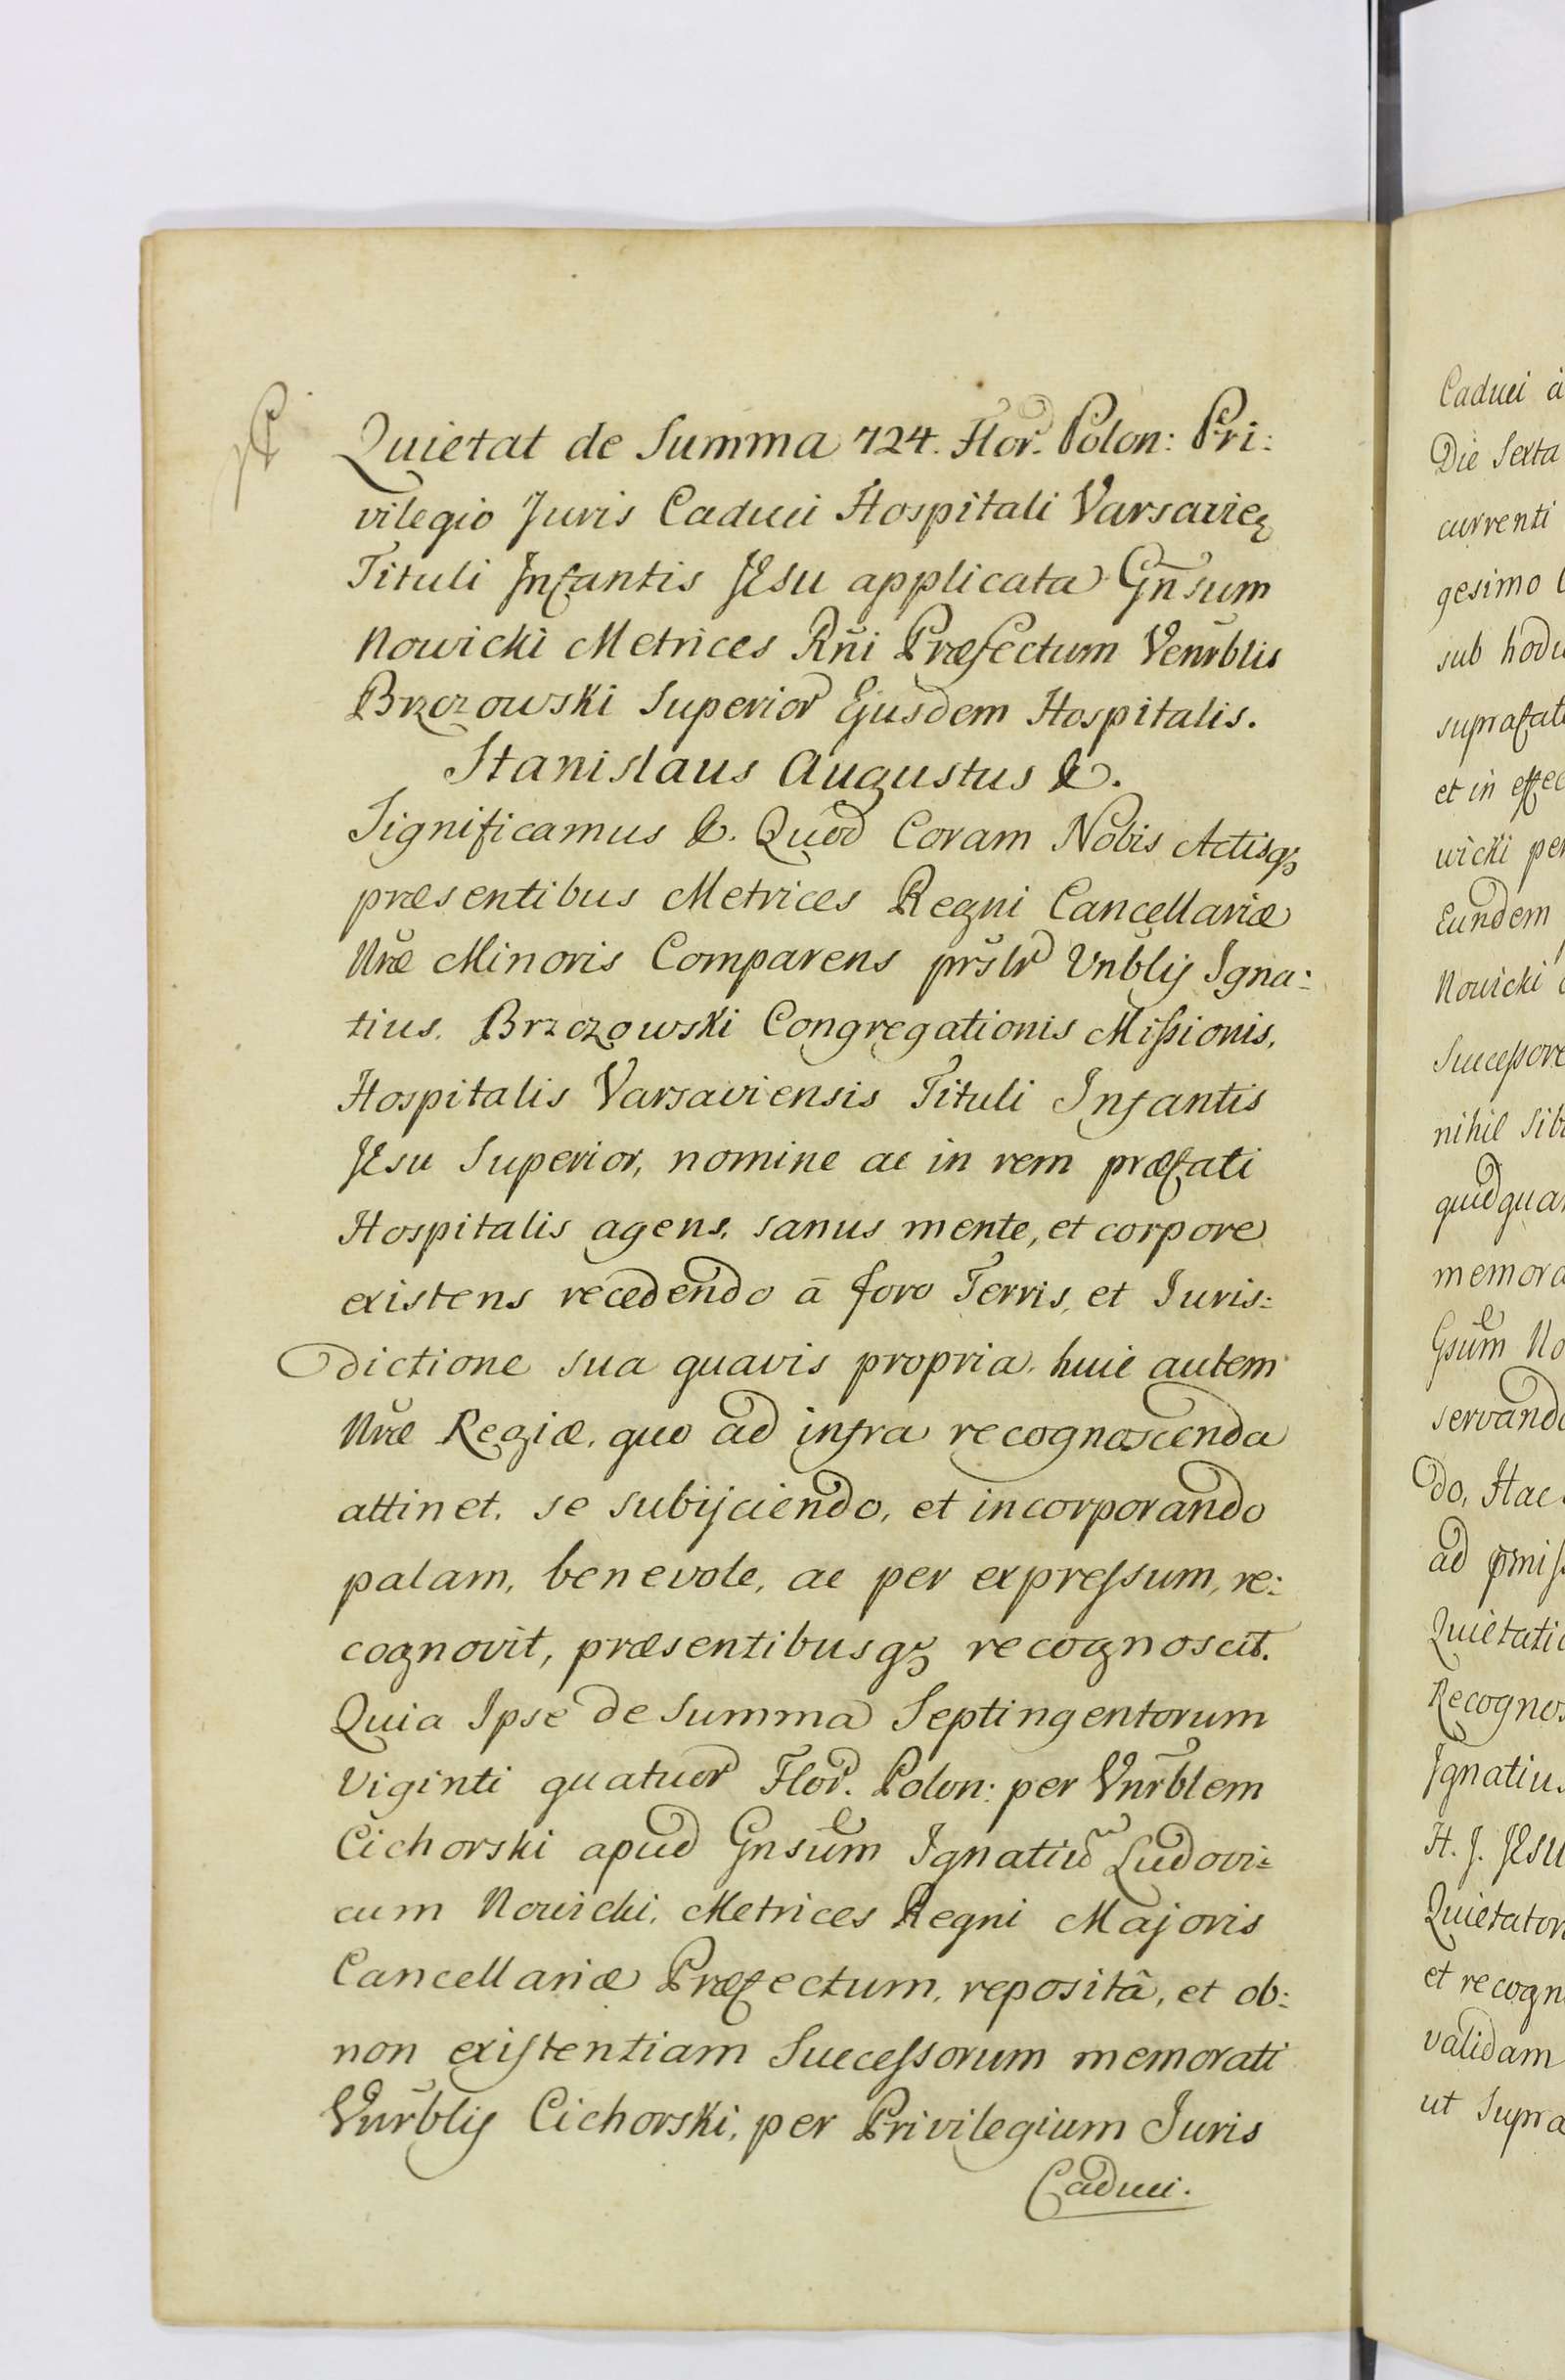 Quietat de Summa 724. Flor. Polon: Pri:
vilegio Juris Caduci Hospitali Varsavieȝ
Tituli Infantis JEsu applicata Gn̄sum
Nowicki Metrices Rñi Præfectum Venr̃blis
Brzozowski Superior Ejusdem Hospitalis.
Stanislaus Augustus &.
Significamus &. Quod Coram Nobis Actisqȝ
præsentibus Metrices Regni Cancellariæ
Nr̃æ Minoris Comparens pr̃slr Vnr̃blis Igna:
tius. Brzozowski Congregationis Missionis,
Hospitalis Varsaviensis Tituli Infantis
JEsu Superior, nomine ac in rem præfati
Hospitalis agens, sanus mente, et corpore
existens recedendo ā foro Terris, et Iuris:
dictione sua quavis propria, huic autem
Nr̃æ Regiæ, quo ad infra recognoscenda
attinet, se subijciendo, et incorporando
palam, benevole, ac per expressum, re:
cognovit, præsentibusqȝ recognoscit.
Quia Ipse de Summa Septingentorum
Viginti quatuor Flor. Polon: per Vnr̃blem
Cichorski apud Gnsum Ignatiū Ludovi:
cum Nowicki, Metrices Regni Majoris
Cancellariæ Præfectum, repositâ, et ob:
non existentiam Successorum memorati
Vnr̃blis Cichorski, per Privilegium Juris
Caduci.
Caduci à
Die Sexta
currenti
gesimo
sub
et in
wicki
Eundem
Nowicki
nihil
Gsum No
do, Hac
ad
Ignatius
H. J. JEsu
validam
ut Supra